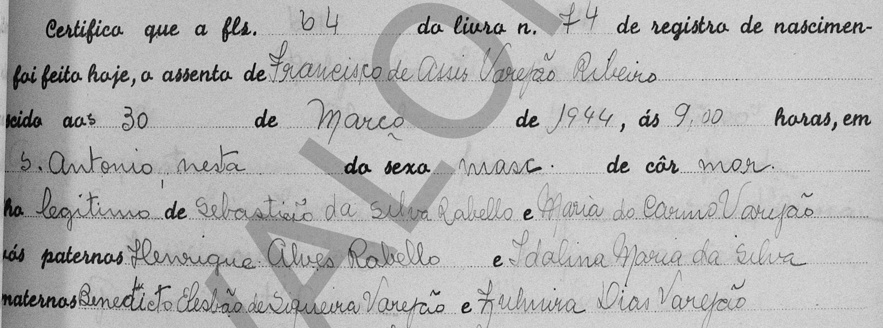 Certifico que a fls. 64 do livro n. 74 de registro de nascimen-
foi feito hoje, o assento de Francisco de Assis Varejão Ribeiro
scido aos 30 de Março de 1944, ás 9,00 horas, em
S. Antonio, nesta do sexo masc. de côr mor.
ho legitimo de Sebastião da Silva Rabello e Maria do Carmo Varejão
vós paternos Henrique Alves Rabello e Idalina Maria da Silva
maternos Benedicto Elesbão de Siqueira Varejão e Zulmira Dias Varejão